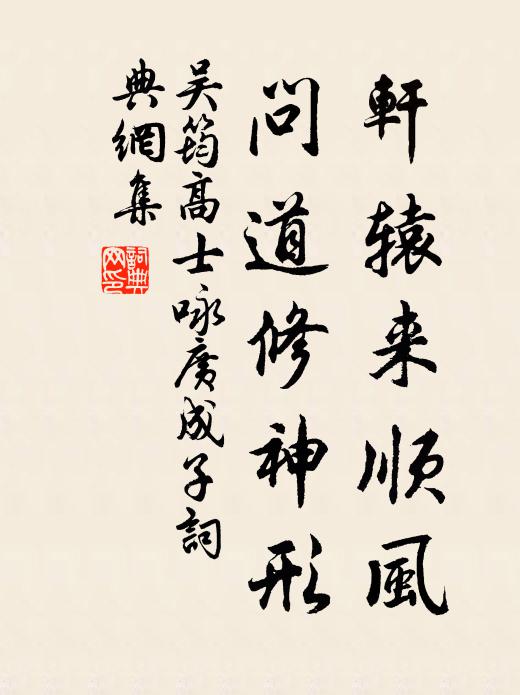 軒辕来順風
問道修神形
吴筠高士咏廣成子詞
典網集
詞典
网印